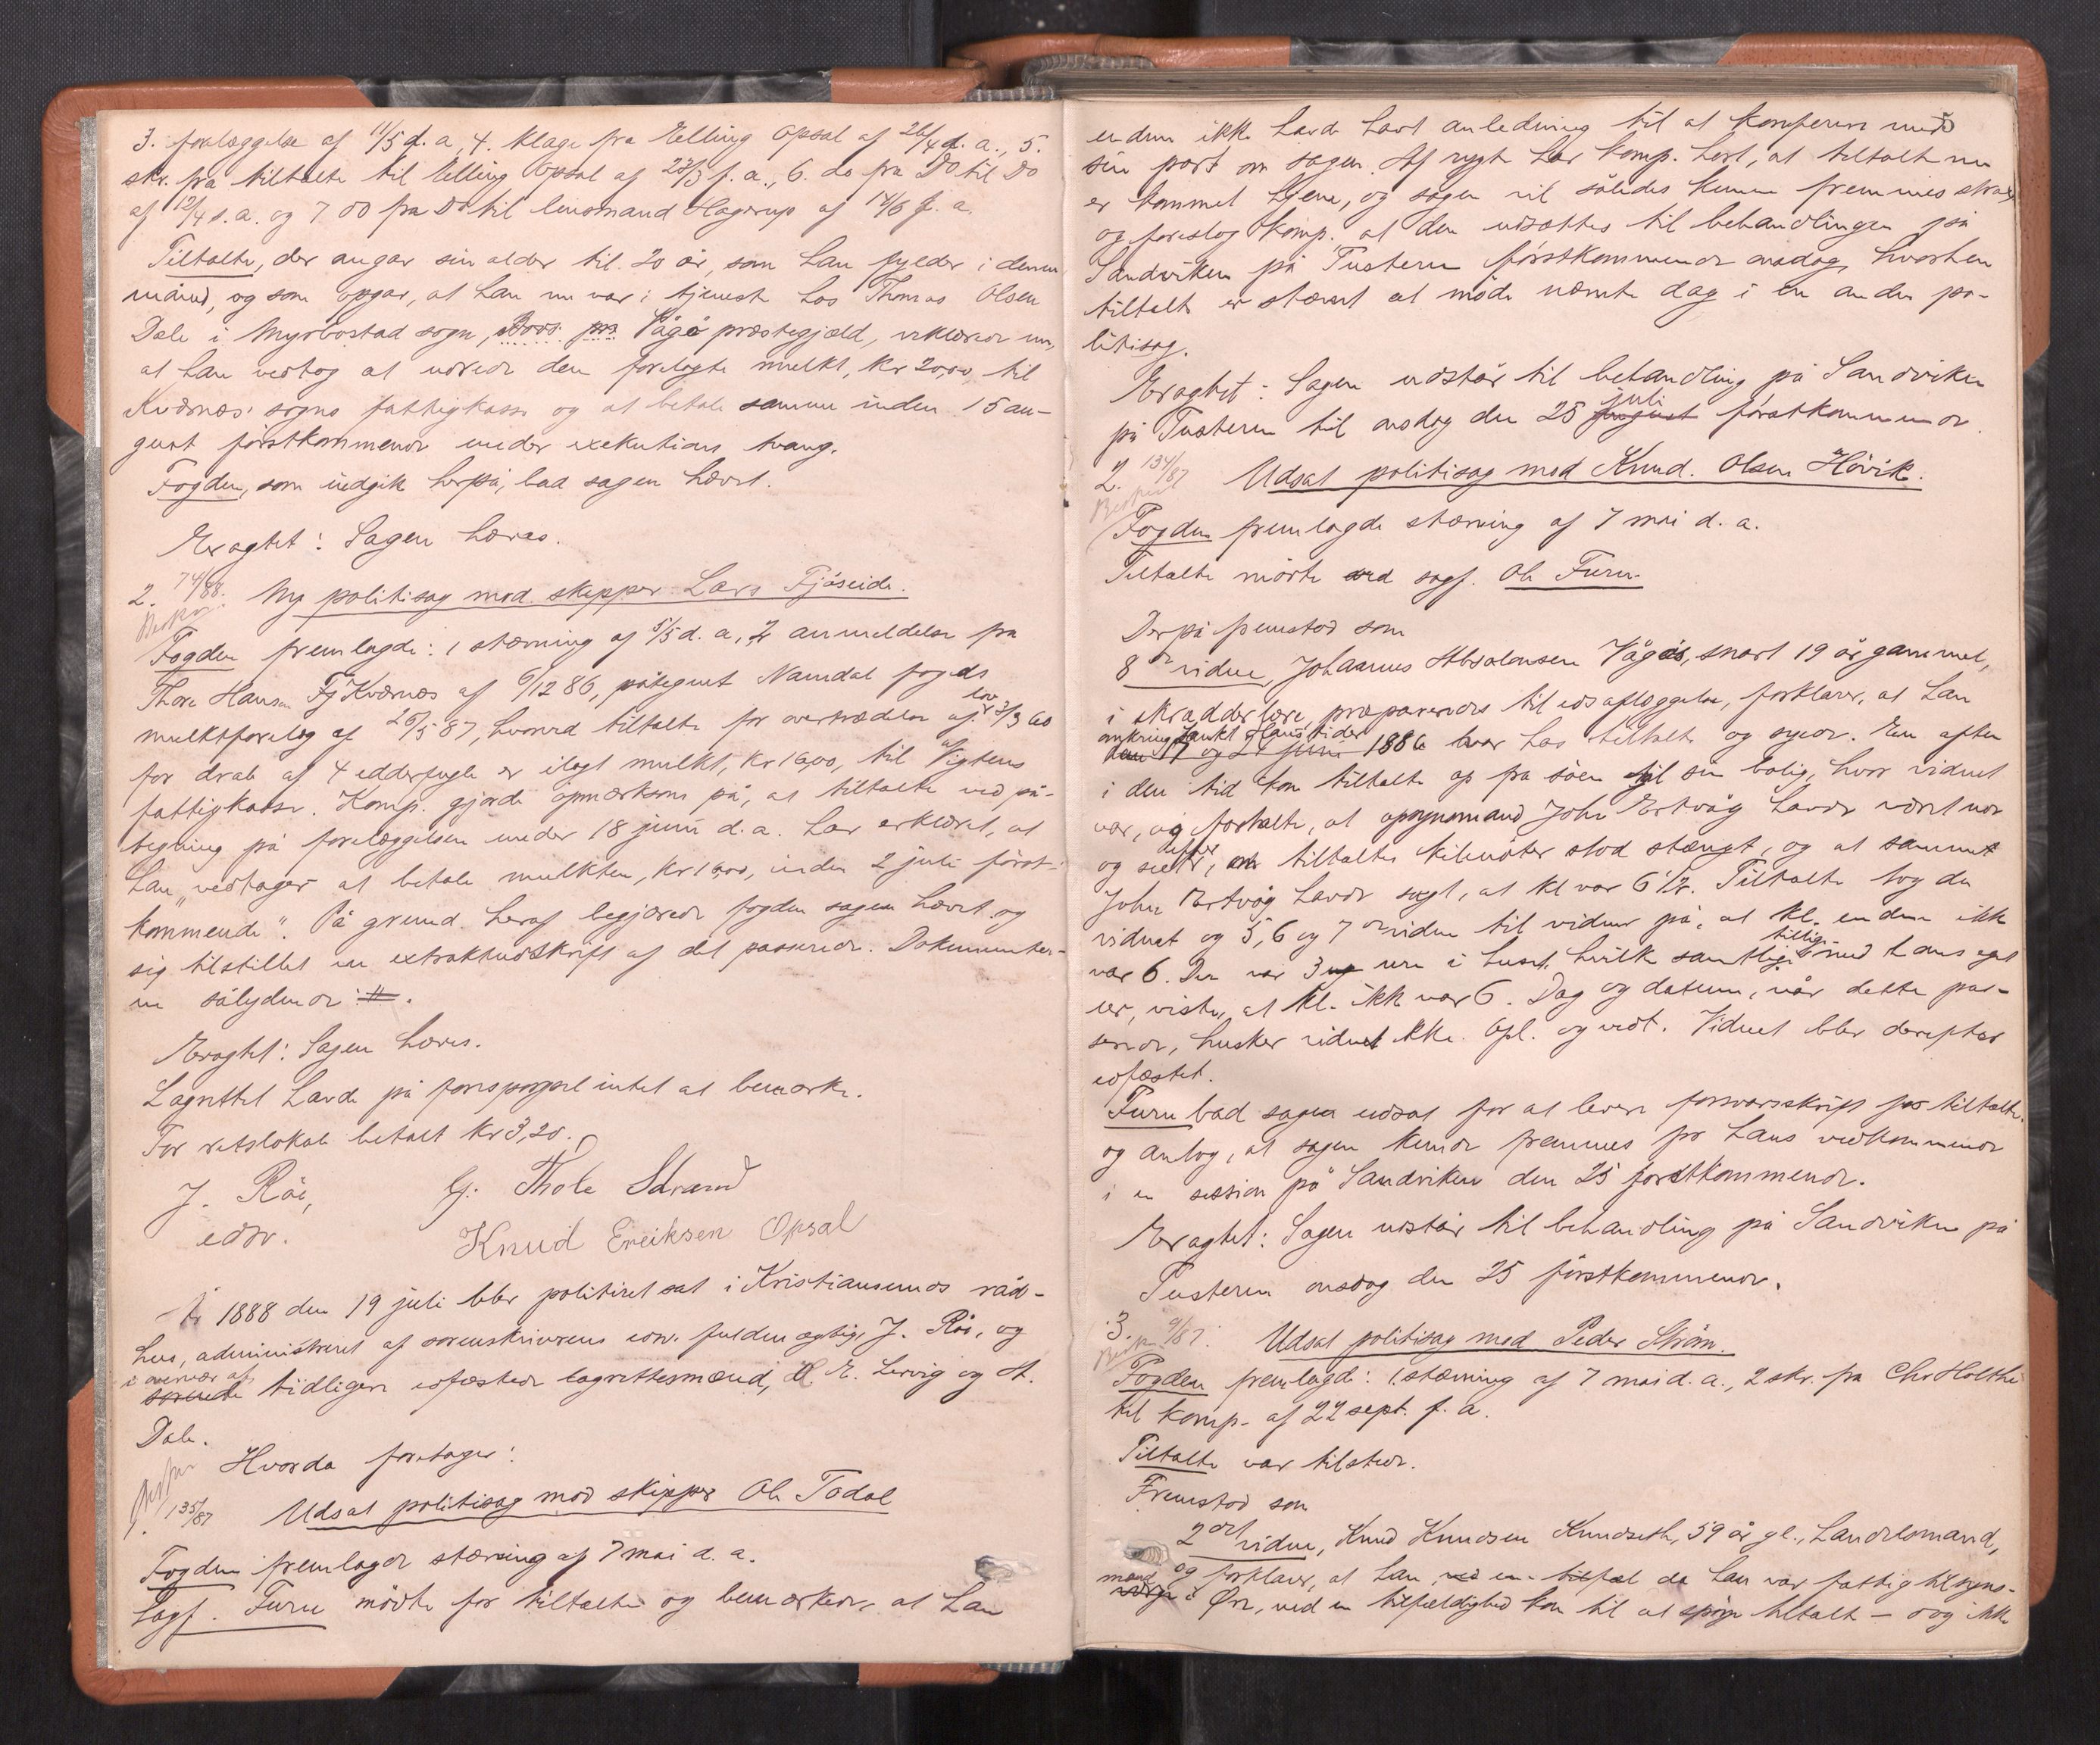 3. forlæggelse af 11/5 d. a, 4. klage fra Elling Opsal af 26/4 d. a., 5.
skr. fra tiltalte til Elling Opsal af 23/3 f. a., 6. do fra Do til Do
af 12/4 s. a. og 7. do fra Do til lensmand Hagerup af 14/6 f. a.
Tiltalte, der angav sin alder til 20 år, som han fylder i denne
måned, og som opgav, at han nu var i tjeneste hos Thomas Olsen
Dale i Myrbostad sogn, Vågø præstegjæld, erklærede nu,
at han vedtog at udrede den forelagte mulkt, kr 20,00, til
Kværnæs sogns fattigkasse og at betale samme inden 15 au-
gust førstkommende under exekutions tvang.
Fogden, som indgik herpå, bad sagen hævet.
Eragtet: Sagen hæves.
2. 74/88. Ny politisag mod skipper Lars Fjøseide.
Fogden fremlagde: 1 stævning af 5/5 d. a, 2 anmeldelse fra
Thore Hansen Kværnæs af 6/12 86, påtegnet Namdal fogeds
mulktforelæg af 26/5 87, hvorved tiltalte for overtrædelse af lov 3/3 60
for drab af 4 edderfugle er ilagt mulkt, kr 16,00, til Vigtens
fattigkasse. Komp. gjorde opmærksom på, at tiltalte ved på-
tegning på forelæggelsen under 18 juni d. a. har erklæret, at
han "vedtager at betale mulkten, kr 16,00, inden 2 juli først-
kommende". På grund heraf begjærede fogden sagen hævet og
sig tilstillet en extraktudskrift af det passerede. Dokumenter-
ne sålydende: #.
Eragtet: Sagen hæves.
Lagrettet havde på forespørgsel intet at bemærke.
For retslokale betalt kr 3,20.
J. Röe, G. Thole Strand
edsv. Knud Ereiksen Opsal
År 1888 den 19 juli blev politiret sat i Kristianssunds råd-
hus, administreret af sorenskriverens edsv. fuldmægtig, J. Röe, og
i overvær af tidligere edfæstede lagrettesmænd, O. E. Lervig og A.
Dale.
Hvorda foretages:
1. 135/87 Udsat politisag mod skipper Ole Todal
Fogden fremlagde stævning af 7 mai d. a.
Sagf. Furu mødte for tiltalte og bemærkede, at han
endnu ikke havde havt anledning til at konferere med
sin part om sagen. Af rygte har komp. hørt, at tiltalte nu
er kommet hjem, og sagen vil således kunne fremmes strax
og foreslog komp. at den udsættes til behandlingen på
Sandviken på Tusteren førstkommende onsdag, hvorhen
tiltalte er stævnet at møde nævnte dag i en anden po-
litisag.
Eragtet: Sagen udstår til behandling på Sandviken
på Tusteren til onsdag den 25 juli førstkommende.
2. 134/87 Udsat politisag mod Knud Olsen Hövik.
Fogden fremlagde stævning af 7 mai d. a.
Tiltalte mødte ved sagf. Ole Furu.
Derpå fremstod som
8de vidne, Johannes Absalonsen Vågös, snart 19 år gammel,
i skrædderlære, præparerdes til edsaflæggelse, forklarer, at han
omkring Sankt Hans tider 1886 var hos tiltalte og syede. En aften
i den tid kom tiltalte op fra søen til sin bolig, hvor vidnet
var, og fortalte, at opsynsmand John Ertvåg havde været ude
og seet efter, om tiltaltes kilenøter stod stængt, og at samme
John Ertvåg havde sagt, at kl var 6 1/2. Tiltalte tog da
vidnet og 5, 6 og 7de vidne til vidner på, at kl. endnu ikke
var 6. Der var 3 ure i huset, hvilke samtlige tillige med hans eget
ur, viste, at kl. ikke var 6. Dag og datum, når dette pas-
serede, husker vidnet ikke. Opl. og vedt. Vidnet blev derefter
edfæstet.
Furu bad sagen udsat for at levere forsvarsskrift for tiltalte
og antog, at sagen kunde fremmes for hans vedkommende
i en session på Sandviken den 25 førstkommende.
Eragtet: Sagen udstår til behandling på Sandviken på
Tusteren onsdag den 25 førstkommende.
3. 9/87. Udsat politisag mod Peder Ström.
Fogden fremlagde: 1. stævning af 7 mai d. a., 2 skr. fra Chr Holthe
til komp. af 22 sept. f. a.
Tiltalte var tilstede.
Fremstod som
2det vidne, Knud Knudsen Knudseth, 59 år gl., handelsmand,
og forklarer, at han da han var fattigtilsyns-
mand i Øre, ved en tilfældighed kom til at spørge tiltalte - dog ikke